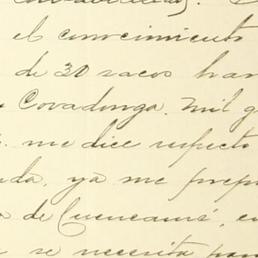 el conocimiento
de 30 sacos har
Covadonga. Mil g
me dice respecto
nda, ya me prep
de Cuencamé, en
se necesita para